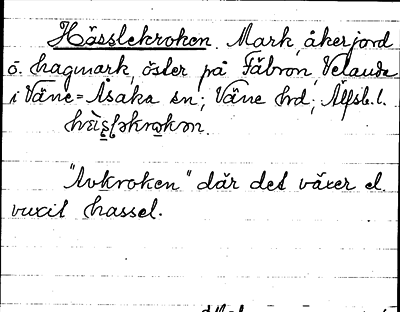 Hässlekroken. Mark, åkerjord
o. hagmark, öster på Fäbron, Velanda
i Väne-Åsaka sn; Väne hd; Älfsb. l.
"Avkroken" där det växer el.
vuxit hassel.